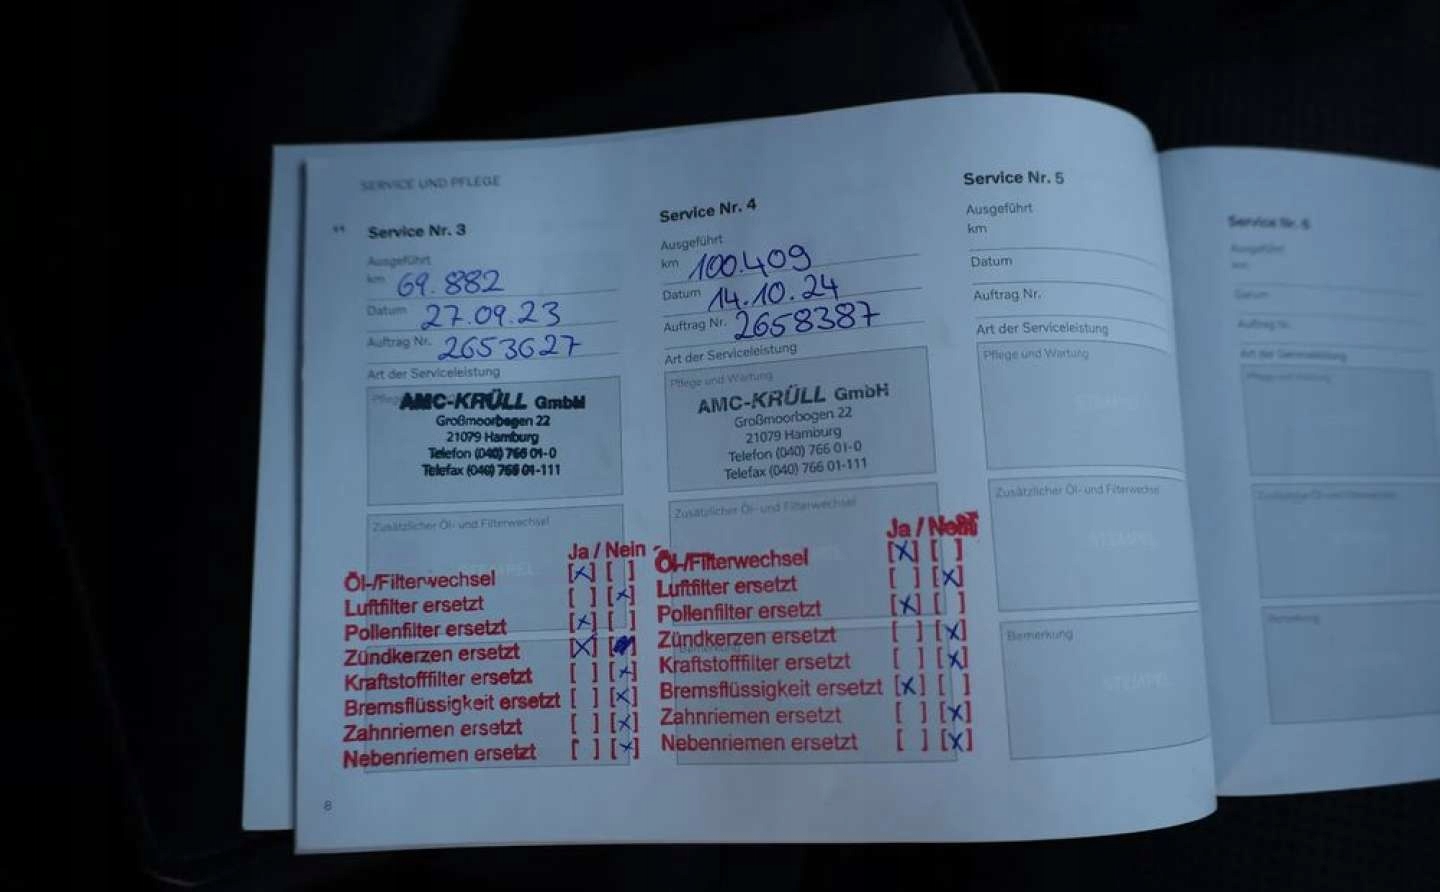 SERVICE UND PFLEGE
Service Nr. 3
Ausgeführt
km 69.882
Datum 27.09.23
Auftrag Nr. 2653627
Art der Serviceleistung
AMC-KRÜLL GmbH
Großmoorbogen 22
21079 Hamburg
Telefon (040) 766 01-0
Telefax (040) 766 01-111
Zusätzlicher Öl- und Filterwechsel
Ja / Nein
Öl-/Filterwechsel [X] [ ]
Luftfilter ersetzt [ ] [X]
Pollenfilter ersetzt [X] [ ]
Zündkerzen ersetzt [X] [ ]
Kraftstofffilter ersetzt [ ] [X]
Bremsflüssigkeit ersetzt [ ] [X]
Zahnriemen ersetzt [ ] [X]
Nebenriemen ersetzt [ ] [X]
8
Service Nr. 4
Ausgeführt
km 100.409
Datum 14.10.24
Auftrag Nr. 2658387
Art der Serviceleistung
Pflege und Wartung
AMC-KRÜLL GmbH
Großmoorbogen 22
21079 Hamburg
Telefon (040) 766 01-0
Telefax (040) 766 01-111
Zusätzlicher Öl- und Filterwechsel
Ja / Nein
Öl-/Filterwechsel [X] [ ]
Luftfilter ersetzt [ ] [X]
Pollenfilter ersetzt [X] [ ]
Zündkerzen ersetzt [ ] [X]
Kraftstofffilter ersetzt [ ] [X]
Bremsflüssigkeit ersetzt [X] [ ]
Zahnriemen ersetzt [ ] [X]
Nebenriemen ersetzt [ ] [X]
Service Nr. 5
Ausgeführt
km
Datum
Auftrag Nr.
Art der Serviceleistung
Pflege und Wartung
STEMPEL
Zusätzlicher Öl- und Filterwechsel
STEMPEL
Bemerkung
STEMPEL
Service Nr. 6
Ausgeführt
km
Datum
Auftrag Nr.
Art der Serviceleistung
Pflege und Wartung